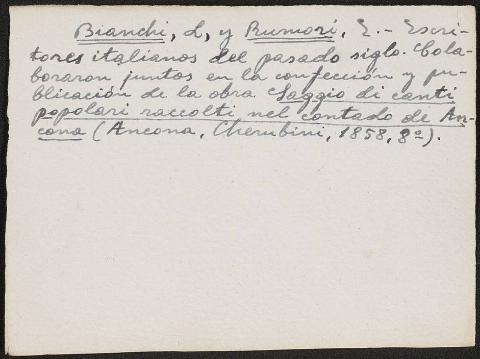 Bianchi, L, y Rumori, E.- Escri-
tores italianos del pasado siglo. Cola-
boraron juntos en la confección y pu-
blicación de la obra Saggio di canti
popolari raccolti nel contado de An-
cona (Ancona, Cherubini, 1858, 8º).